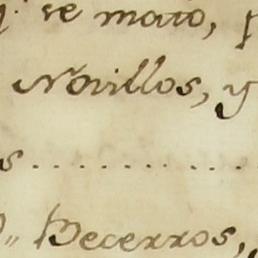 q.e se mató, p
Novillos, y
s ..........
" Becerros,